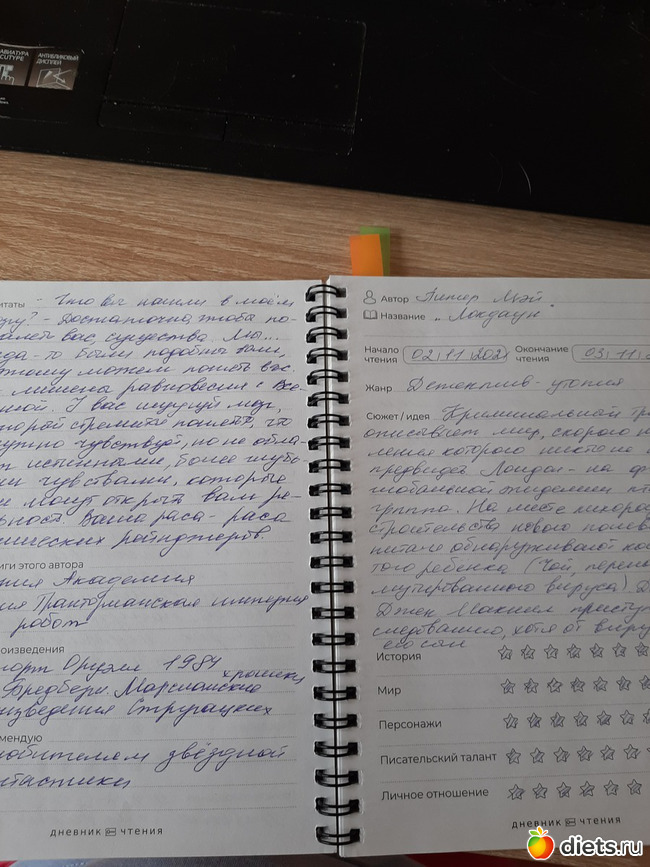 АВИАТУРА
CUTYPE
АНТИБЛИКОВЫЙ
ДИСПЛЕЙ
итаты - Что вы нашли в моём
ру? - Достаточно, чтобы по-
вас, существа. Мы...
да-то были подобны вам,
этому можем понять вас.
лишены равновесия с Все-
ной. У вас ищущий мозг,
торой стремится понять, что
нужно чувствует, но не обла-
т истинными, более глубо-
ми чувствами, которые
и могут открыть вам ре-
льность. Ваша раса - раса
мических рейнджеров.
иги этого автора
ия Академия
ия Транторианская империя
робот
роизведения
Оруэлл 1984
Бредбери Марсианские хроники
изведения Стругацких
мендую
юбителям звёздной
нтастики
ДНЕВНИК ЧТЕНИЯ
Автор Питер Мэй.
Название „Локдаун
Начало чтения 02.11.202
Окончание чтения 03.11.2
Жанр Детектив - утопия
Сюжет / идея Криминальный тр
описывает мир, скорого н
ления которого никто не
предвидел. Лондон - на
глобальной эпидемии
гриппа. На месте
строительства нового
питале обнаруживают ко
того ребенка (чой,
мутированного вируса) Д
Джек Макнил приступ
следованию, хотя от виру
его сын
История
Мир
Персонажи
Писательский талант
Личное отношение
ДНЕВНИК ЧТЕНИЯ
diets.ru